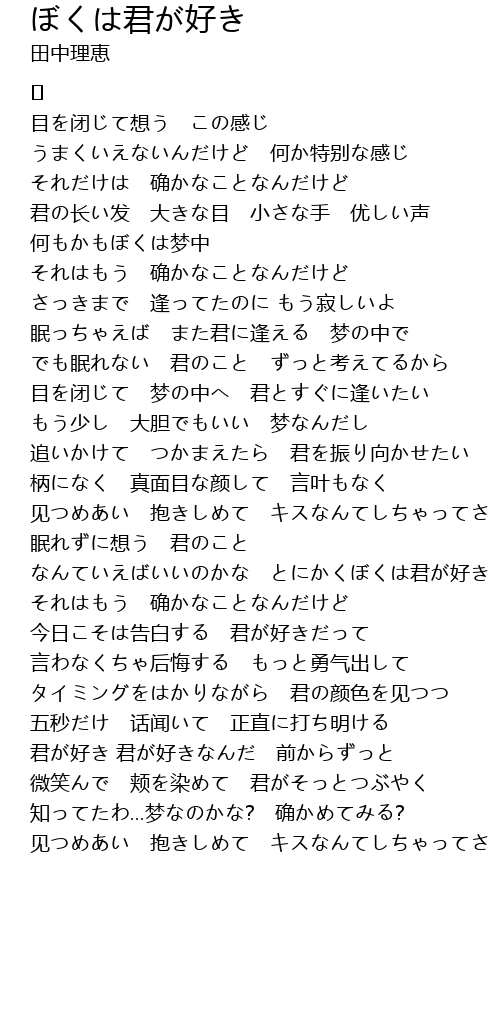 ぼくは君が好き
田中理恵
[]
目を闭じて想う　この感じ
うまくいえないんだけど　何か特别な感じ
それだけは　确かなことなんだけど
君の长い发　大きな目　小さな手　优しい声
何もかもぼくは梦中
それはもう　确かなことなんだけど
さっきまで　逢ってたのに もう寂しいよ
眠っちゃえば　また君に逢える　梦の中で
でも眠れない　君のこと　ずっと考えてるから
目を闭じて　梦の中へ　君とすぐに逢いたい
もう少し　大胆でもいい　梦なんだし
追いかけて　つかまえたら　君を振り向かせたい
柄になく　真面目な颜して　言叶もなく
见つめあい　抱きしめて　キスなんてしちゃってさ
眠れずに想う　君のこと
なんていえばいいのかな　とにかくぼくは君が好き
それはもう　确かなことなんだけど
今日こそは告白する　君が好きだって
言わなくちゃ后悔する　もっと勇气出して
タイミングをはかりながら　君の颜色を见つつ
五秒だけ　话闻いて　正直に打ち明ける
君が好き 君が好きなんだ　前からずっと
微笑んで　颊を染めて　君がそっとつぶやく
知ってたわ...梦なのかな?　确かめてみる?
见つめあい　抱きしめて　キスなんてしちゃってさ